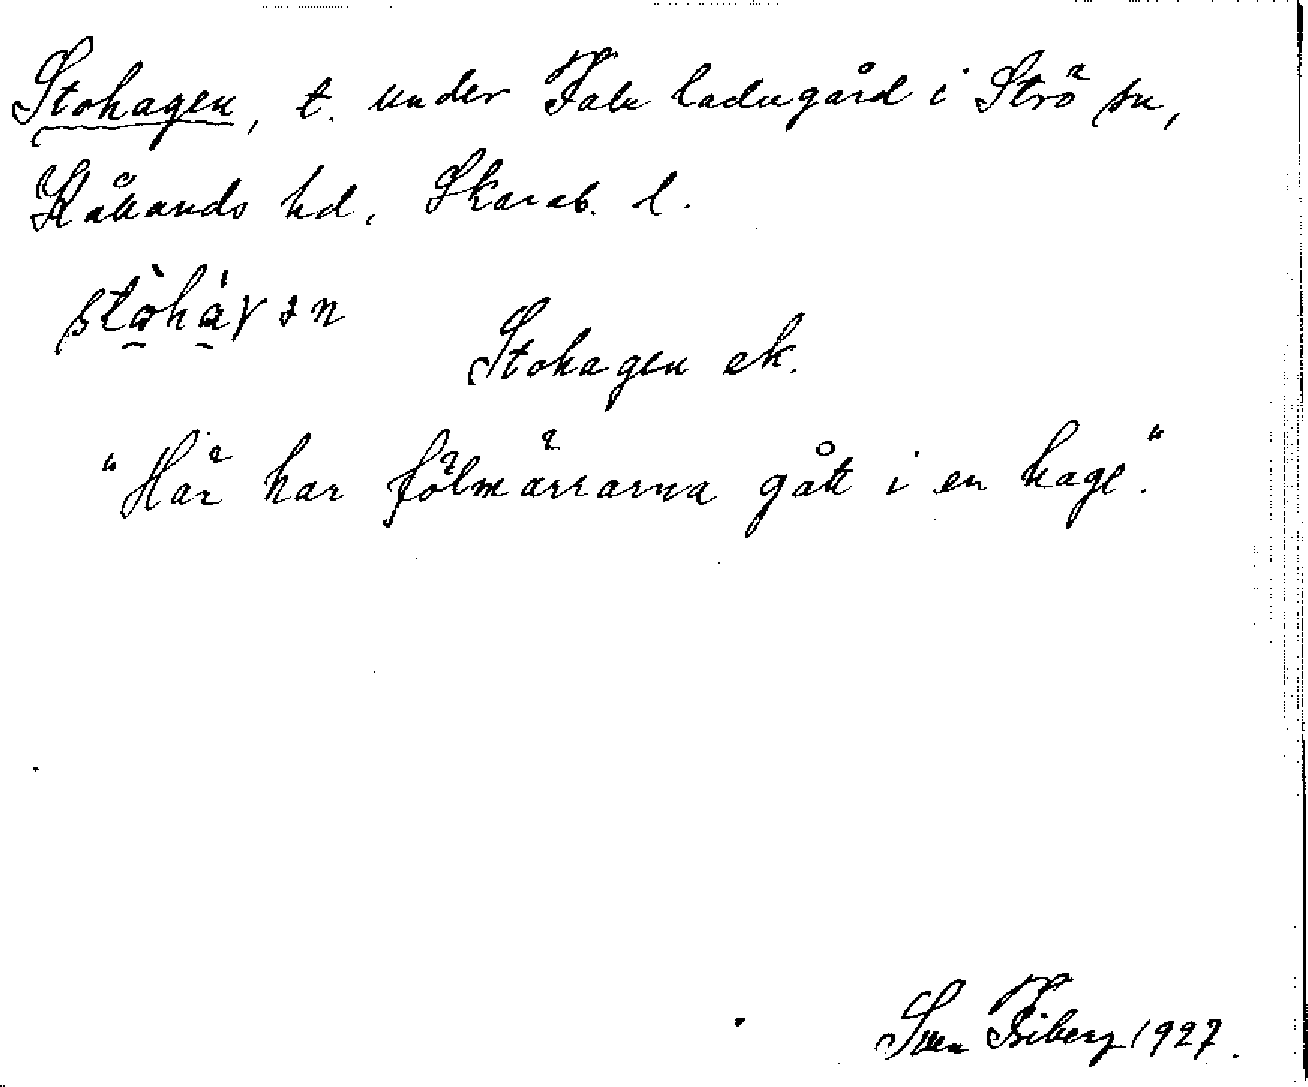 Stohagen, t. under Fale ladugård i Strö sn,
Kållands hd, Skarab. l.
Stohagen ek.
"Här har fölmärrarna gått i en hage."
Sven Friberg 1927.